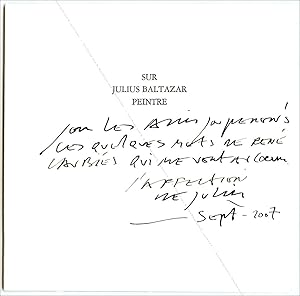 SUR
JULIUS BALTAZAR
PEINTRE
pour les amis
ces quelques mots de René
Laubiès qui me vont au cœur
l'affection
de Julius
Sept - 2007